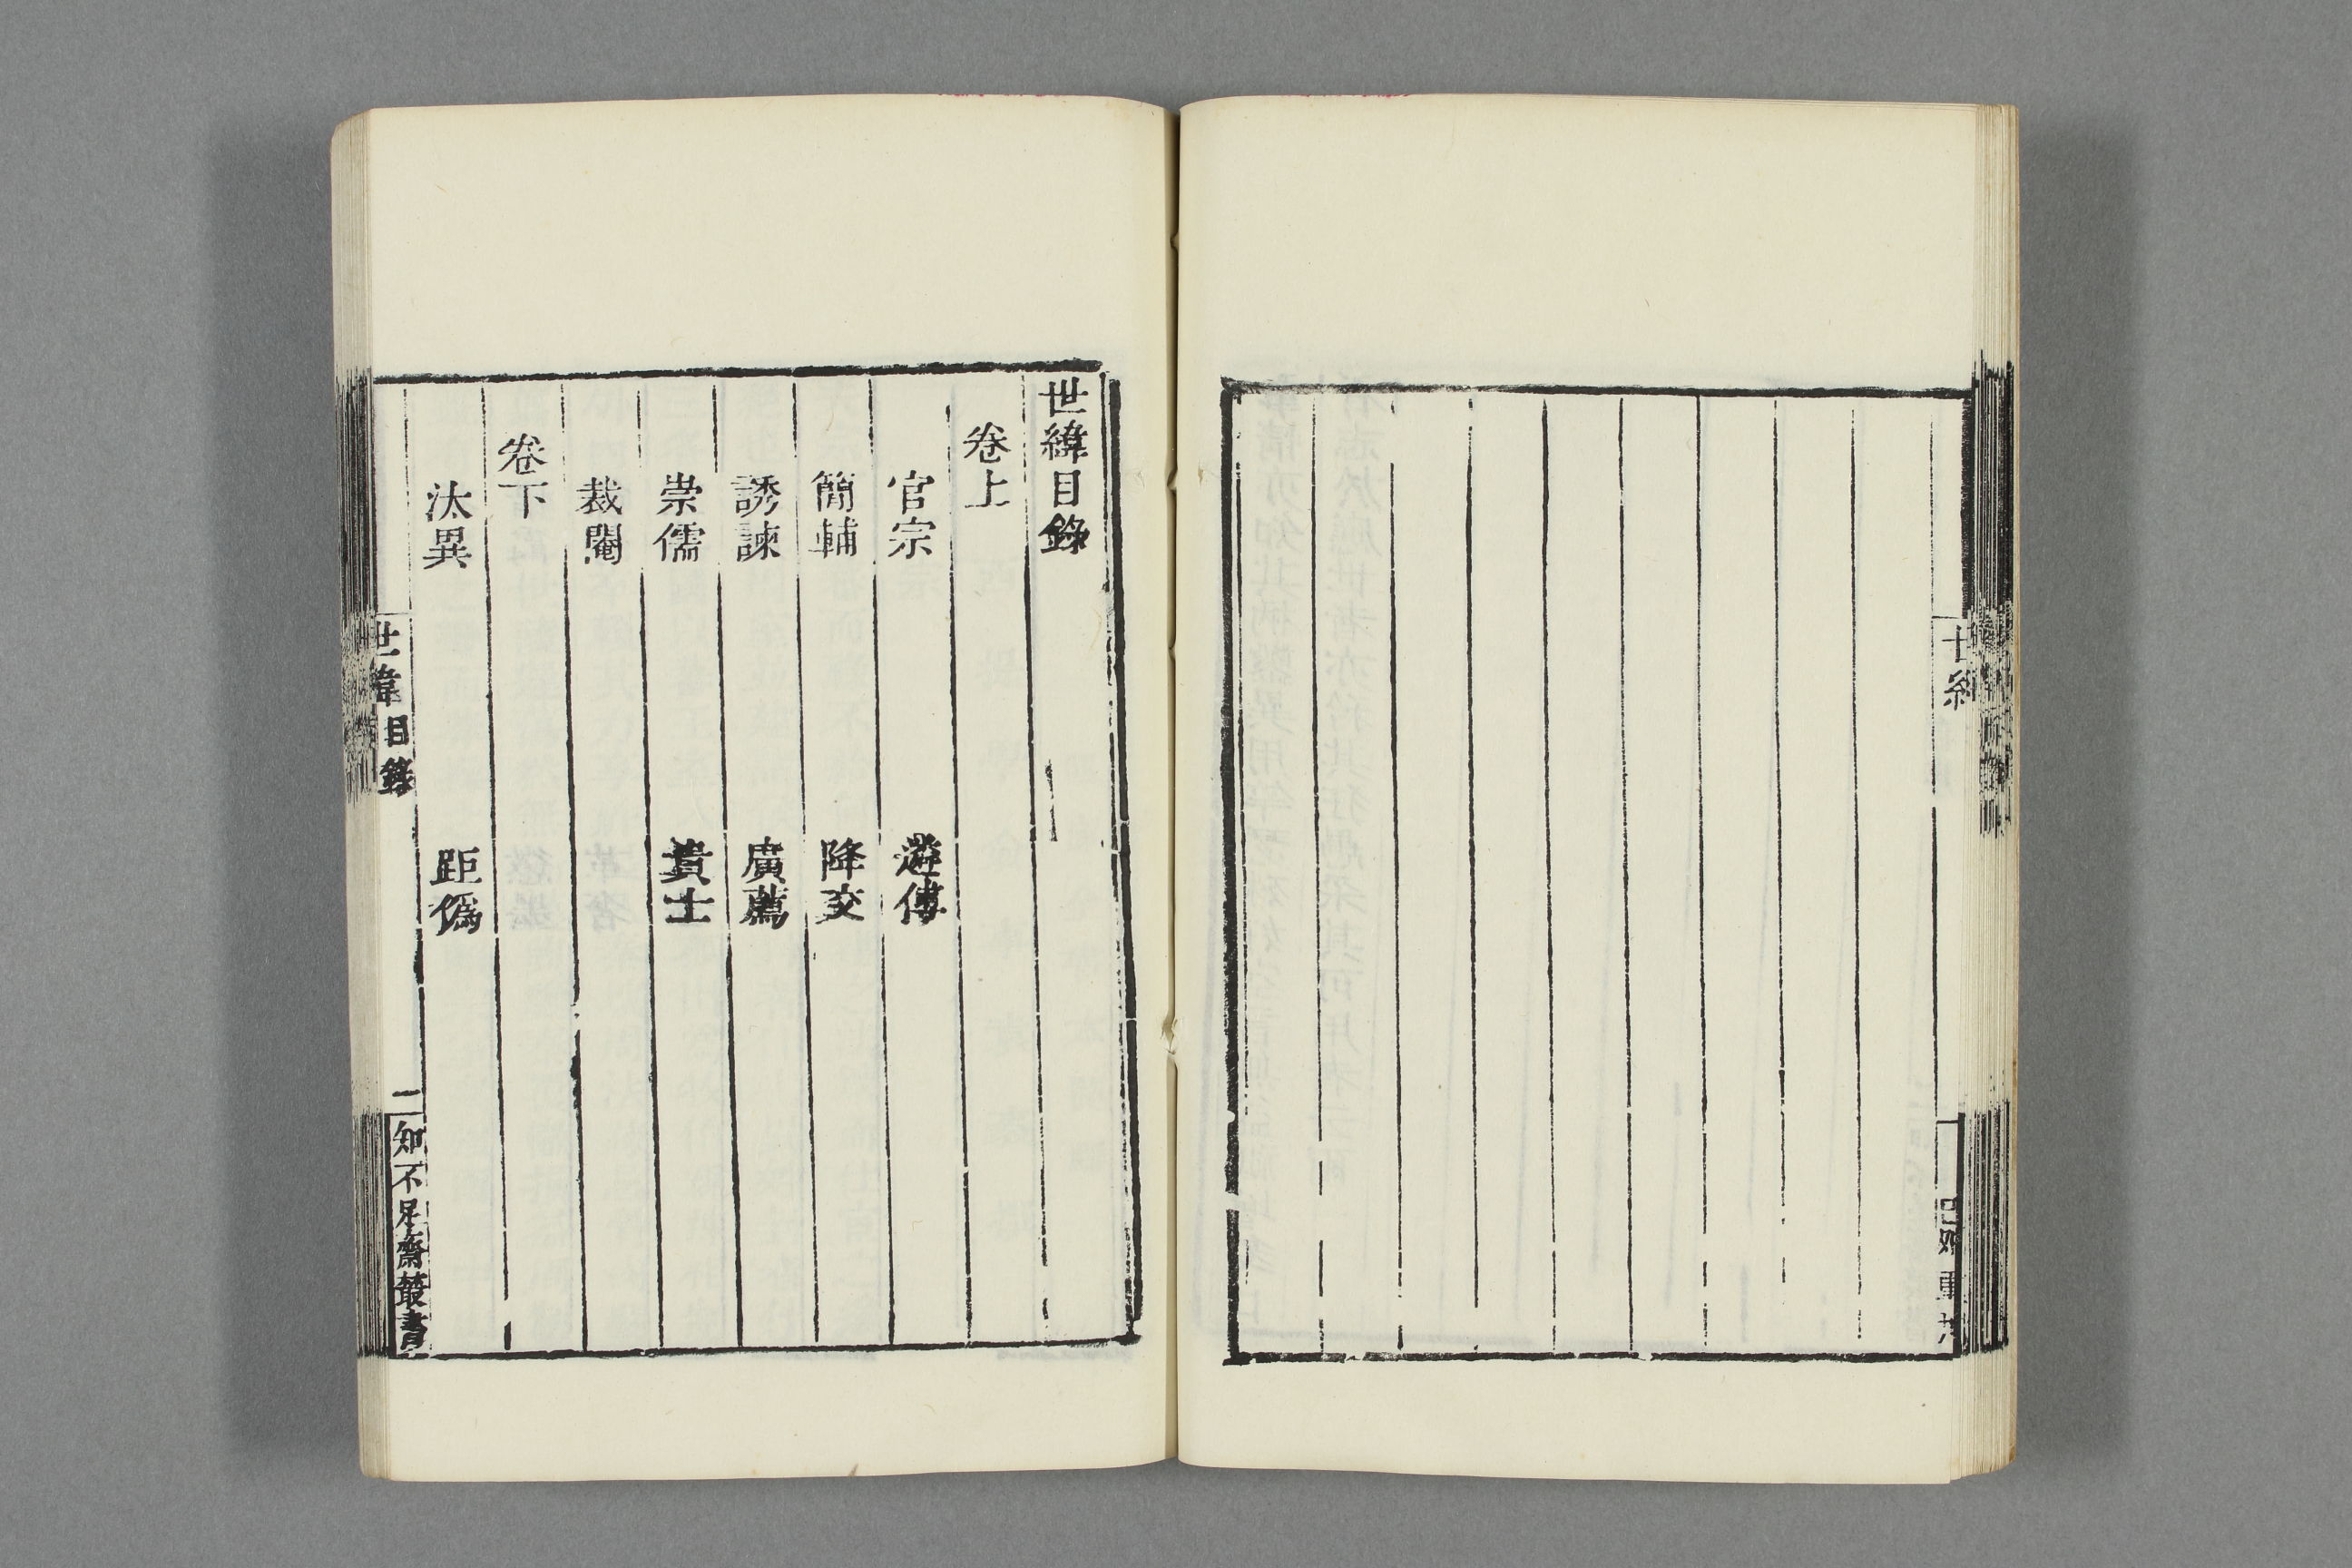 世緯目錄
卷上
官宗
遴傅
簡輔
降交
誘諫
廣薦
崇儒
貴士
裁閹
卷下
汰異
距僞
世緯目錄
一
知不足齋叢書